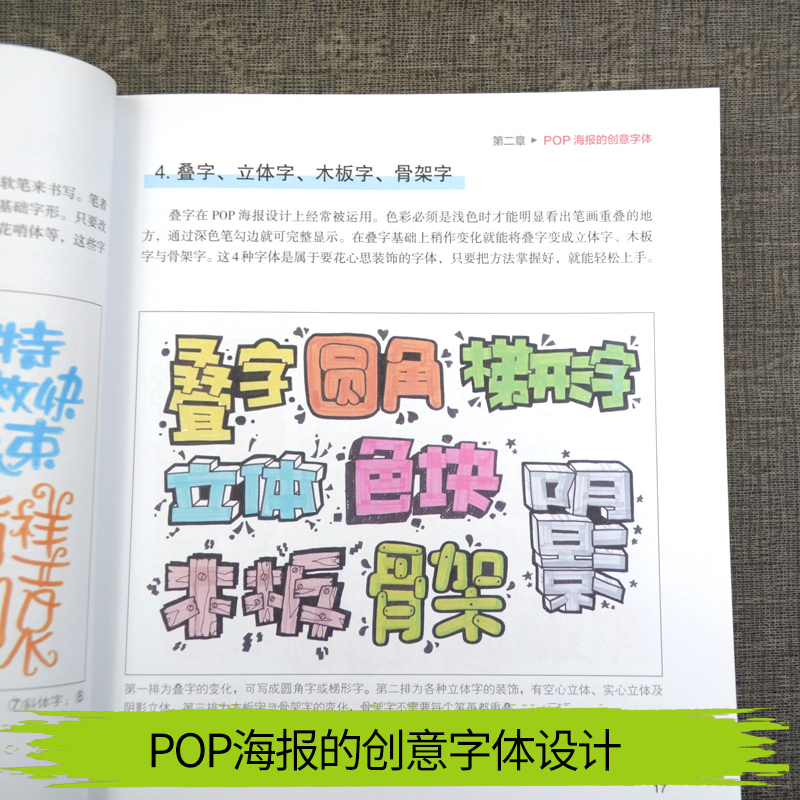 软笔来书写。笔者
基础字形。只要改
花哨体等，这些字
特
效快
⑦斜体字；⑧
第二章 ▶ POP 海报的创意字体
4. 叠字、立体字、木板字、骨架字
叠字在 POP 海报设计上经常被运用。色彩必须是浅色时才能明显看出笔画重叠的地
方，通过深色笔勾边就可完整显示。在叠字基础上稍作变化就能将叠字变成立体字、木板
字与骨架字。这 4 种字体是属于要花心思装饰的字体，只要把方法掌握好，就能轻松上手。
叠字 圆角 梯形字
立体 色块 阴影
木板 骨架
第一排为叠字的变化，可写成圆角字或梯形字。第二排为各种立体字的装饰，有空心立体、实心立体及
阴影立体。第三排为木板字与骨架字的变化，骨架字不需要每个笔画都重叠
POP海报的创意字体设计
17